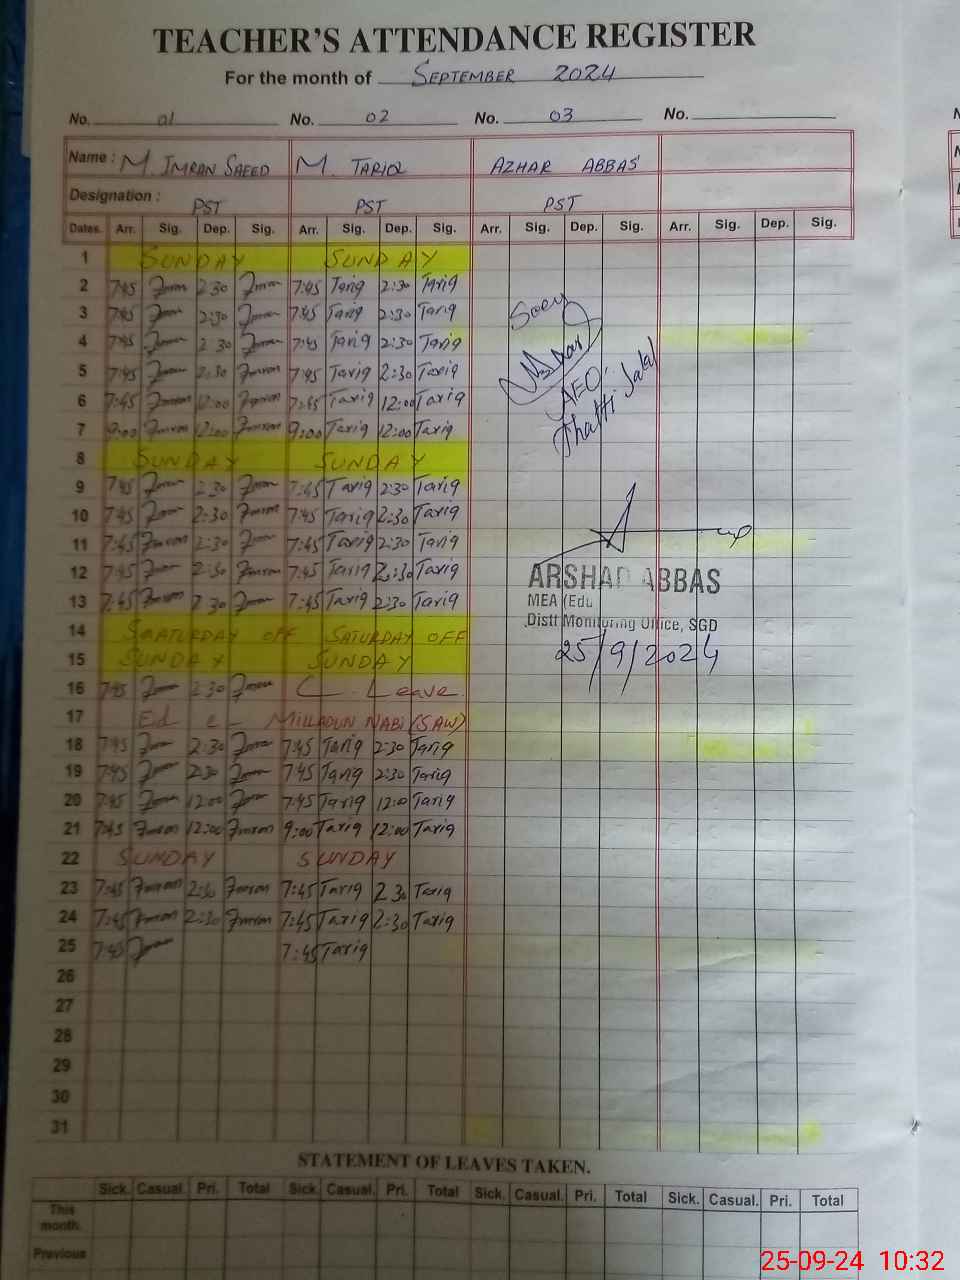 TEACHER'S ATTENDANCE REGISTER
For the month of SEPTEMBER 2024
No. 01 No. 02 No. 03 No.
Name: M. IMRAN SAEED M. TARIQ AZHAR ABBAS
Designation: PST PST PST
Dates. Arr. Sig. Dep. Sig. Arr. Sig. Dep. Sig. Arr. Sig. Dep. Sig. Arr. Sig. Dep. Sig.
1 SUNDAY SUNDAY
2 7:45 Imran 2:30 Imran 7:45 Tariq 2:30 Tariq
3 7:45 Imran 2:30 Imran 7:45 Tariq 2:30 Tariq
4 7:45 Imran 2 30 Imran 7:45 Tariq 2:30 Tariq
5 7:45 Imran 2:30 Imran 7:45 Tariq 2:30 Tariq
6 7:45 Imran 12:00 Imran 7:45 Tariq 12:00 Tariq
7 9:00 Imran 12:00 Imran 9:00 Tariq 12:00 Tariq
AEO
Thatti Jalal
8 SUNDAY SUNDAY
9 7:45 Imran 2:30 Imran 7:45 Tariq 2:30 Tariq
10 7:45 Imran 2:30 Imran 7:45 Tariq 2:30 Tariq
11 7:45 Imran 2:30 Imran 7:45 Tariq 2:30 Tariq
12 7:45 Imran 2:30 Imran 7:45 Tariq 2:30 Tariq
13 7:45 Imran 2 30 Imran 7:45 Tariq 2:30 Tariq
ARSHAD ABBAS
MEA (Edu
Distt Monitoring Office, SGD
25/9/2024
14 SAATURDAY OFF SATURDAY OFF
15 SUNDAY SUNDAY
16 7:45 Imran 2:30 Imran C. Leave
17 Ed e - MILLADUN NABI (SAW)
18 7:45 Imran 2:30 Imran 7:45 Tariq 2:30 Tariq
19 7:45 Imran 2:30 Imran 7:45 Tariq 2:30 Tariq
20 7:45 Imran 12:00 Imran 7:45 Tariq 12:0 Tariq
21 7:45 Imran 12:00 Imran 9:00 Tariq 12:00 Tariq
22 SUNDAY SUNDAY
23 7:45 Imran 2:30 Imran 7:45 Tariq 2.30 Tariq
24 7:45 Imran 2:30 Imran 7:45 Tariq 2:30 Tariq
25 7:45 Imran 7:45 Tariq
26
27
28
29
30
31
STATEMENT OF LEAVES TAKEN.
Sick. Casual. Pri. Total Sick. Casual. Pri. Total Sick. Casual. Pri. Total Sick. Casual. Pri. Total
This month.
Previous
25-09-24 10:32